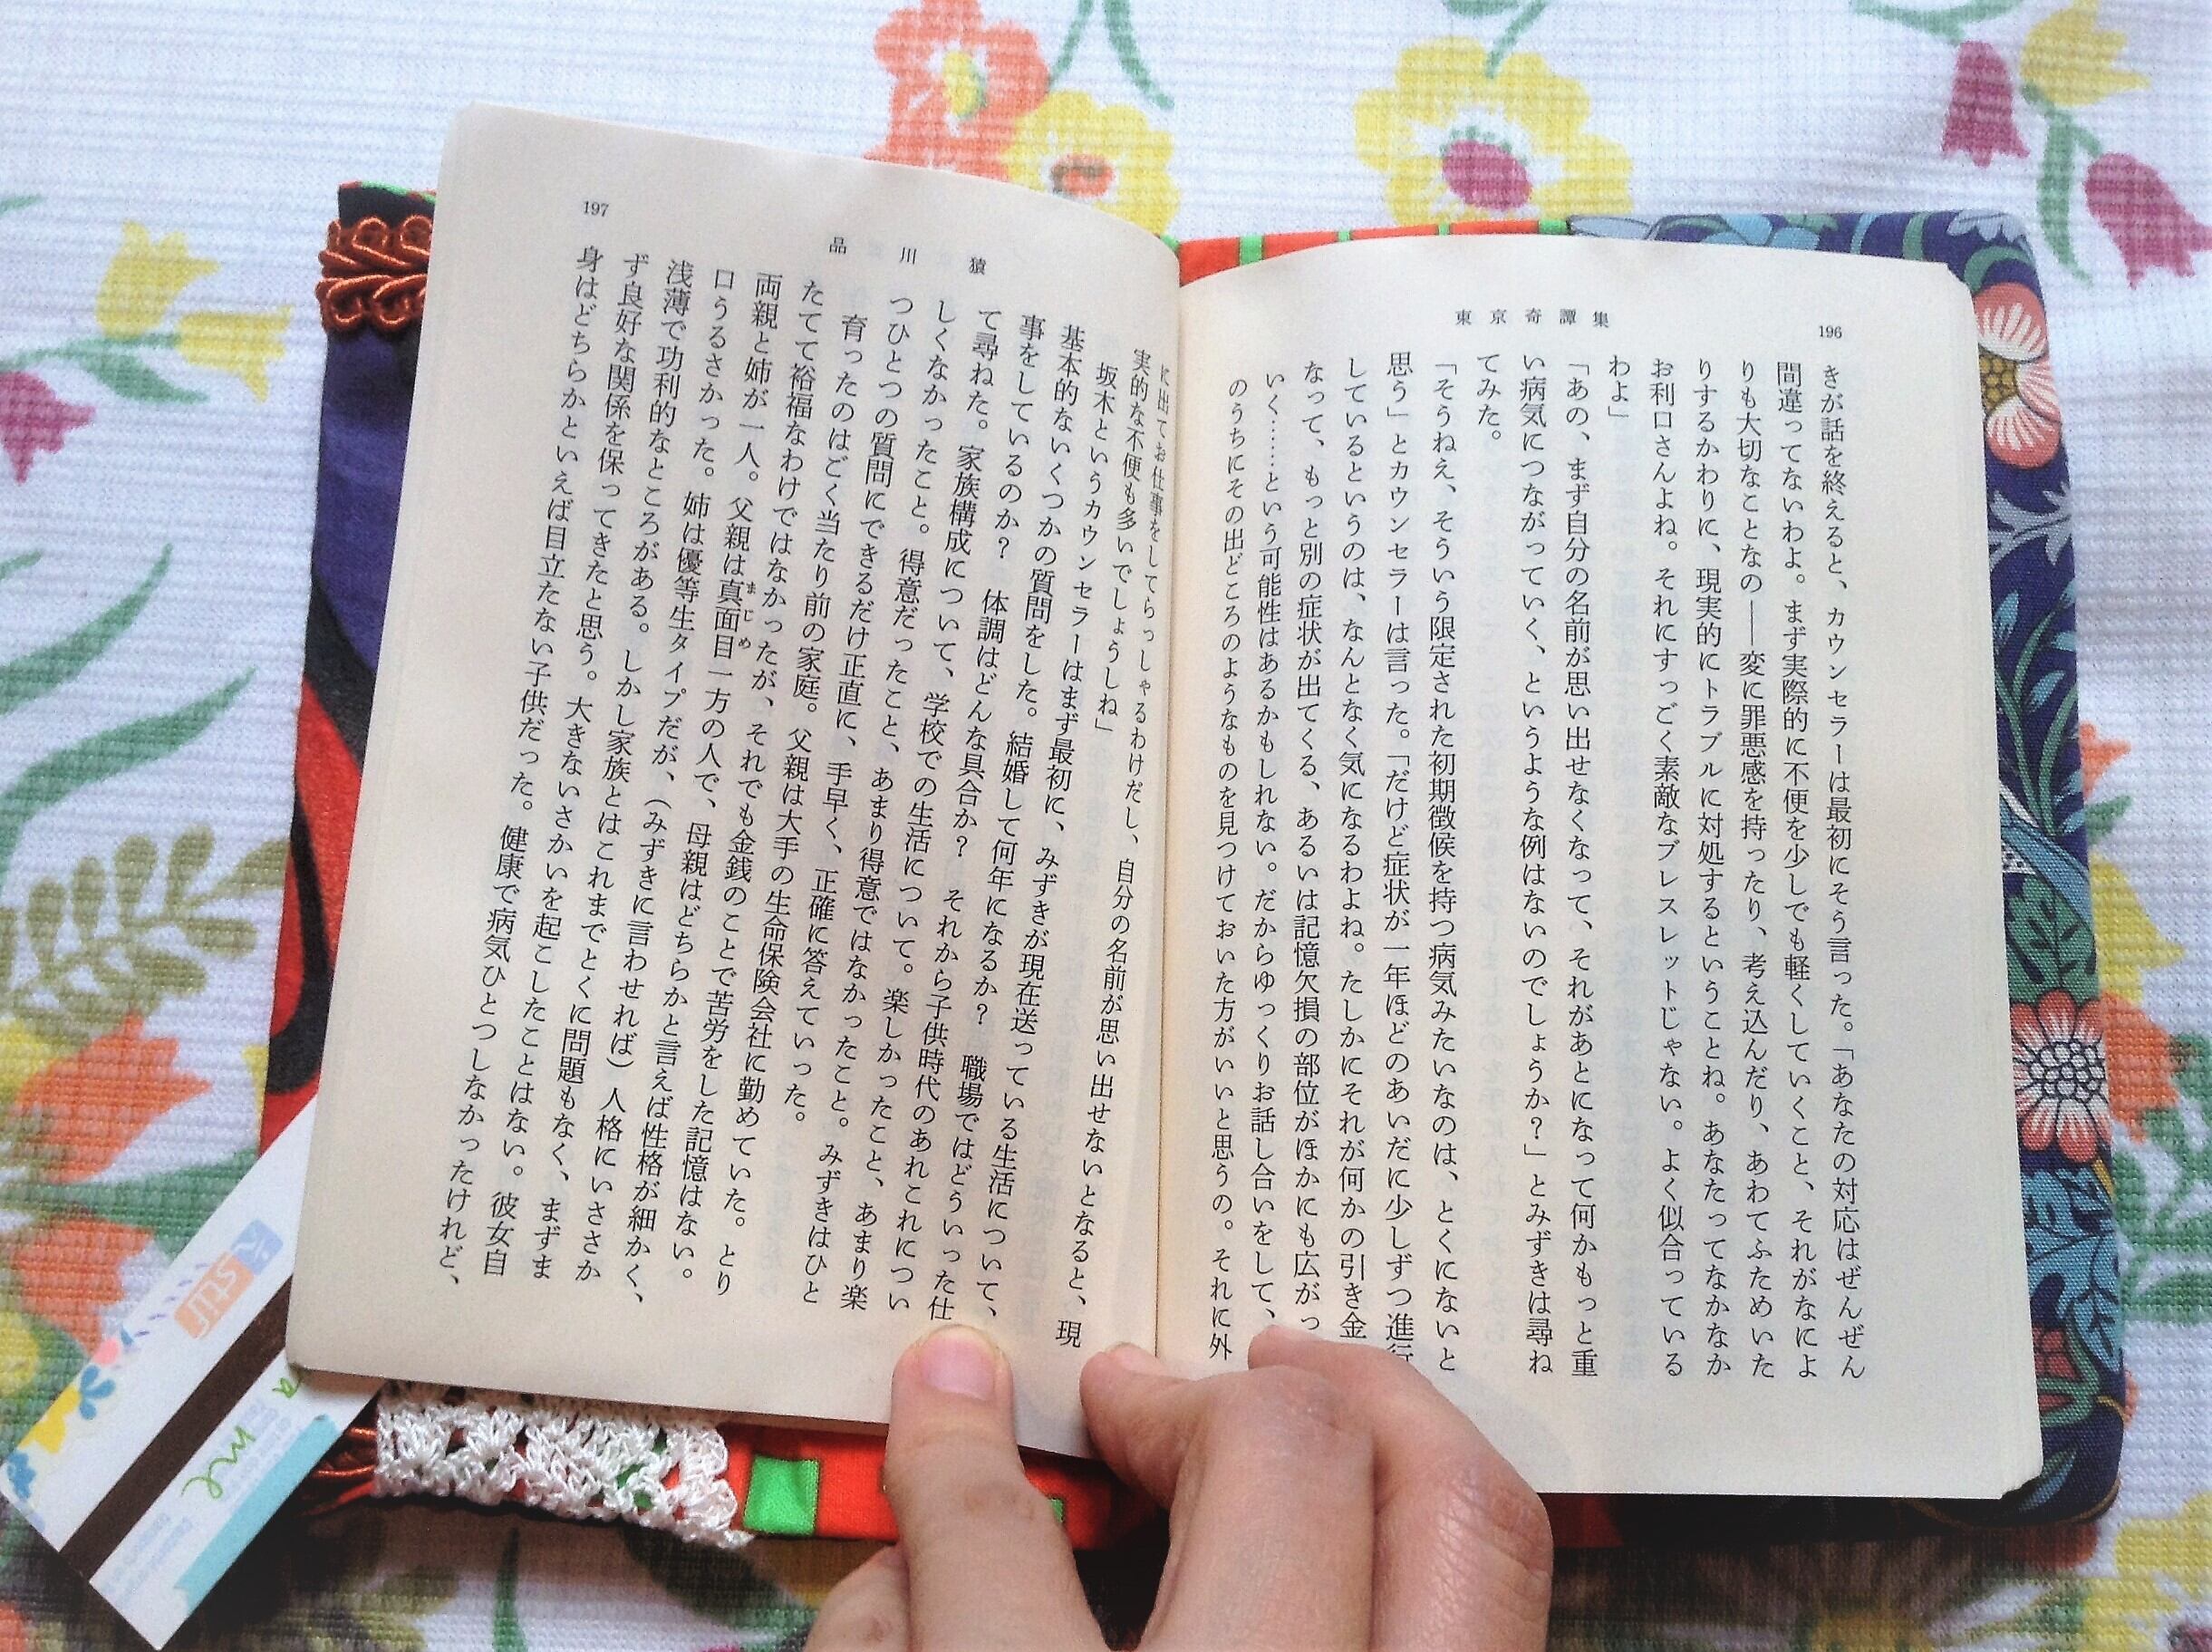 196
東京奇譚集
きが話を終えると、カウンセラーは最初にそう言った。「あなたの対応はぜんぜん
間違ってないわよ。まず実際的に不便を少しでも軽くしていくこと、それがなによ
りも大切なことなの――変に罪悪感を持ったり、考え込んだり、あわてふためいた
りするかわりに、現実的にトラブルに対処するということね。あなたってなかなか
お利口さんよね。それにすっごく素敵なブレスレットじゃない。よく似合っている
わよ」
「あの、まず自分の名前が思い出せなくなって、それがあとになって何かもっと重
い病気につながっていく、というような例はないのでしょうか?」とみずきは尋ね
てみた。
「そうねえ、そういう限定された初期徴候を持つ病気みたいなのは、とくにないと
思う」とカウンセラーは言った。「だけど症状が一年ほどのあいだに少しずつ進行
しているというのは、なんとなく気になるわよね。たしかにそれが何かの引き金
なって、もっと別の症状が出てくる、あるいは記憶欠損の部位がほかにも広がっ
いく……という可能性はあるかもしれない。だからゆっくりお話し合いをして、
のうちにその出どころのようなものを見つけておいた方がいいと思うの。それに外
に出てお仕事をしてらっしゃるわけだし、自分の名前が思い出せないとなると、現
実的な不便も多いでしょうしね」
坂木というカウンセラーはまず最初に、みずきが現在送っている生活について、
基本的ないくつかの質問をした。結婚して何年になるか? 職場ではどういった仕
事をしているのか? 体調はどんな具合か? それから子供時代のあれこれについ
て尋ねた。家族構成について、学校での生活について。楽しかったこと、あまり楽
しくなかったこと。得意だったこと、あまり得意ではなかったこと。みずきはひと
つひとつの質問にできるだけ正直に、手早く、正確に答えていった。
育ったのはごく当たり前の家庭。父親は大手の生命保険会社に勤めていた。とり
たてて裕福なわけではなかったが、それでも金銭のことで苦労をした記憶はない。
両親と姉が一人。父親は真面目一方の人で、母親はどちらかと言えば性格が細かく、
まじめ
口うるさかった。姉は優等生タイプだが、(みずきに言わせれば)人格にいささか
浅薄で功利的なところがある。しかし家族とはこれまでとくに問題もなく、まずま
ず良好な関係を保ってきたと思う。大きないさかいを起こしたことはない。彼女自
身はどちらかといえば目立たない子供だった。健康で病気ひとつしなかったけれど、
品川猿
197
stir
me